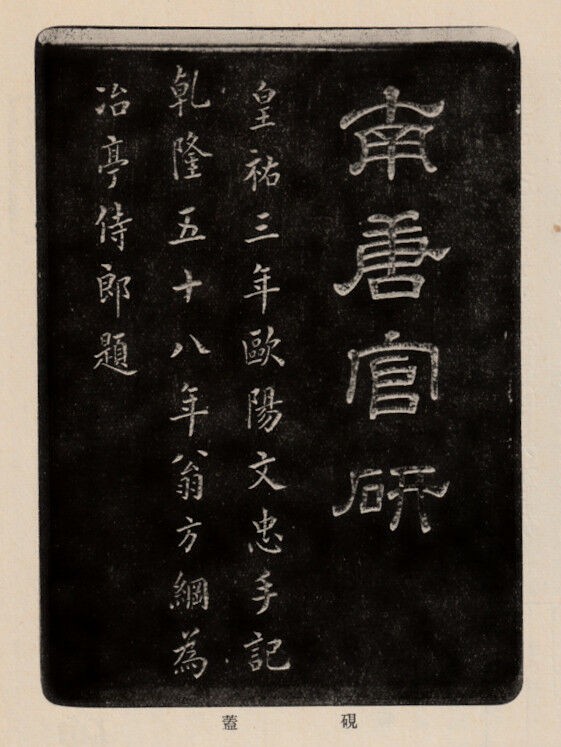 南唐官研
皇祐三年歐陽文忠手記
乾隆五十八年翁方綱為
冶亭侍郎題
硯蓋